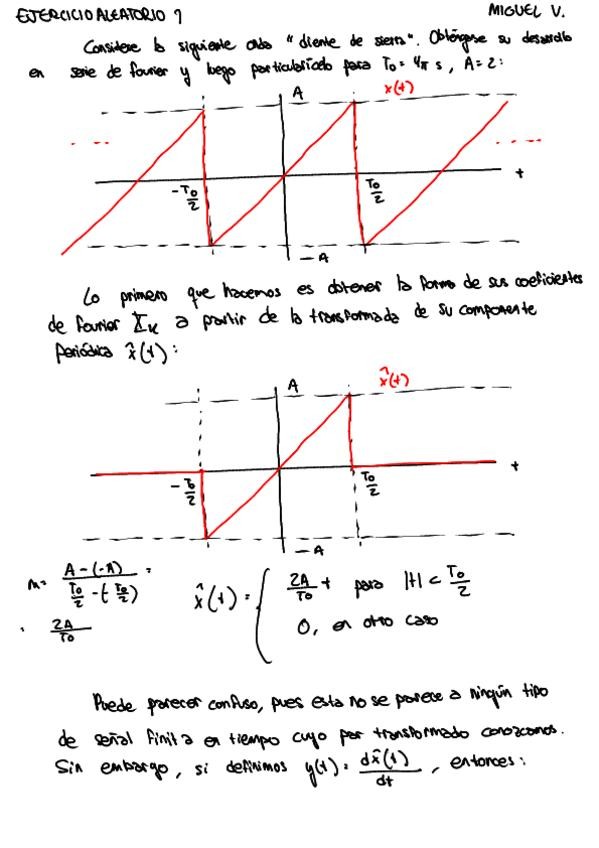 EJERCICIO ALEATORIO 1
MIGUEL V.
Considere la siguiente onda "diente de sierra". Obténgase su desarrollo
en serie de fourier y luego particularícelo para T₀ = 4π s, A = 2:
A
x(t)
-T₀/2
T₀/2
t
-A
Lo primero que hacemos es obtener la forma de sus coeficientes
de fourier X_k a partir de la transformada de su componente
periódica x̂(t):
A
x̂(t)
-T₀/2
T₀/2
t
-A
m = (A-(-A))/(T₀/2-(-T₀/2)) =
= 2A/T₀
x̂(t) = { 2A/T₀ t para |t| < T₀/2
0, en otro caso
Puede parecer confuso, pues esta no se parece a ningún tipo
de señal finita en tiempo cuyo par transformado conozcamos.
Sin embargo, si definimos y(t) = dx̂(t)/dt, entonces: